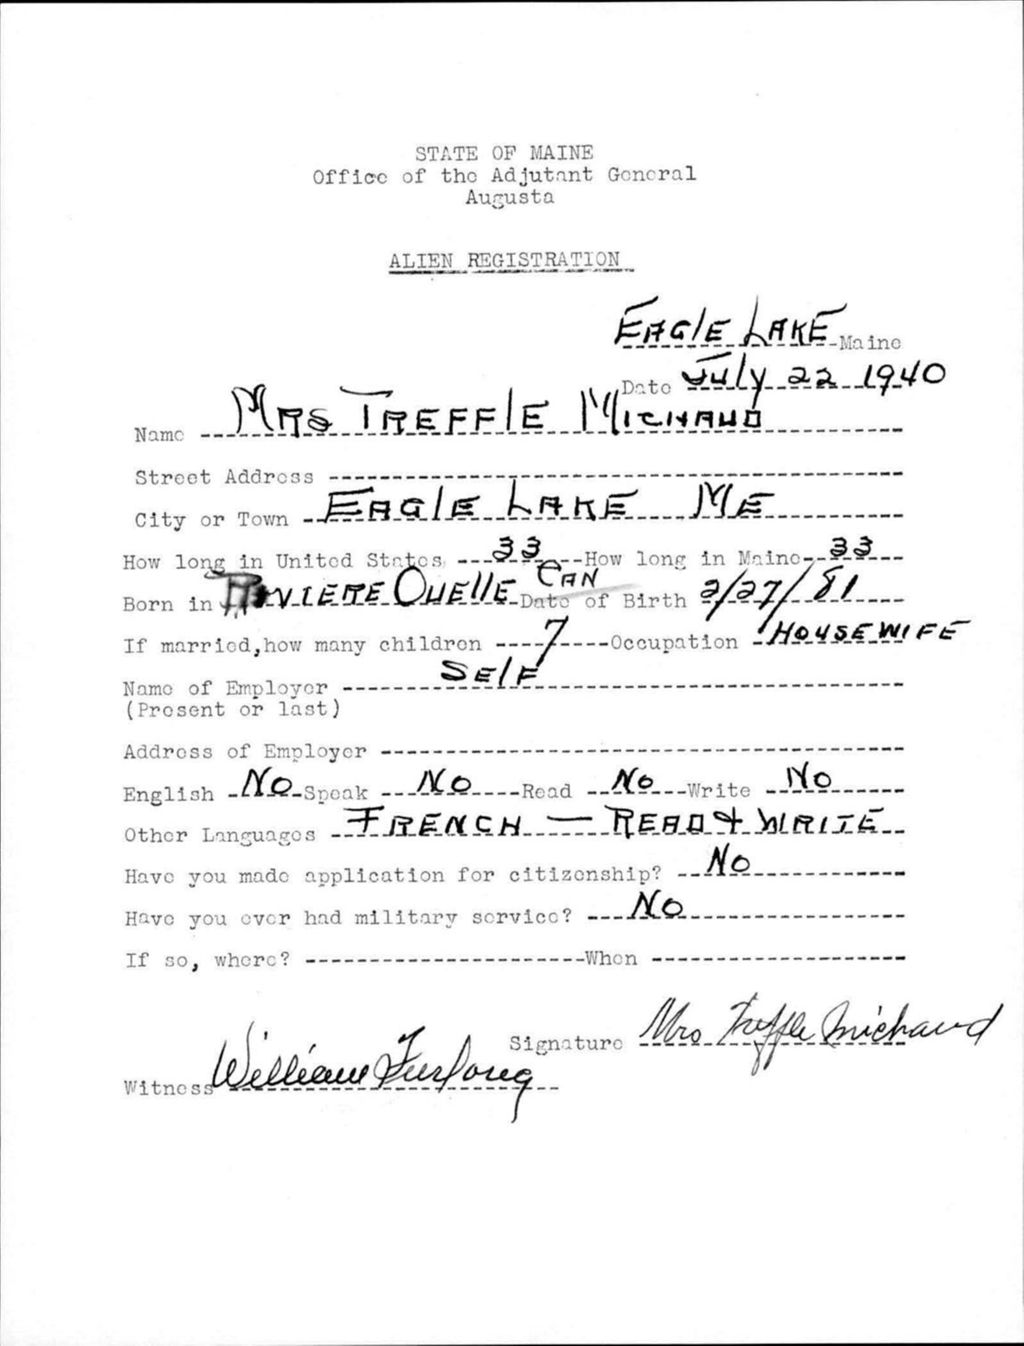 STATE OF MAINE
Office of the Adjutant General
Augusta
ALIEN REGISTRATION
EAGlE LAKE Maine
Date July 22 1940
Name MRS TREFFlE MICHAUD
Street Address
City or Town EAGlE LAKE ME
How long in United States 33 How long in Maine 33
Born in RIVIERE OUElLE CAN Date of Birth 2/27/81
If married,how many children 7 Occupation HOUSEWIFE
Name of Employer SElF
(Present or last)
Address of Employer
English No Speak No Read No Write No
Other Languages FRENCH — READ & WRITE
Have you made application for citizenship? No
Have you ever had military service? No
If so, where? When
Signature Mrs Treffle Michaud
Witness William Furlong